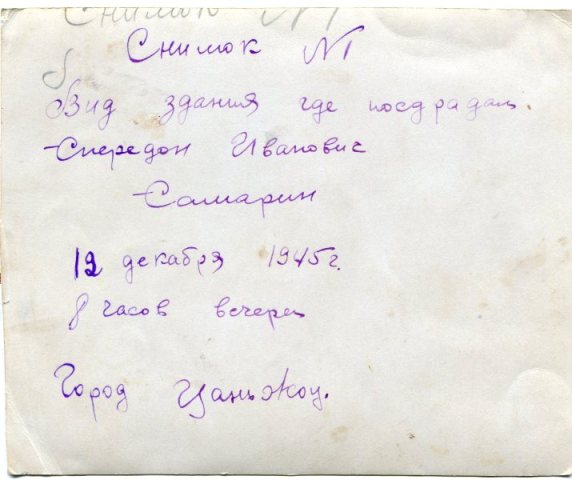 Снимок №1
Снимок №1
Вид здания где пострадал
Спередон Иванович
Самарин
12 декабря 1945 г.
8 часов вечера
Город Цаньжоу.